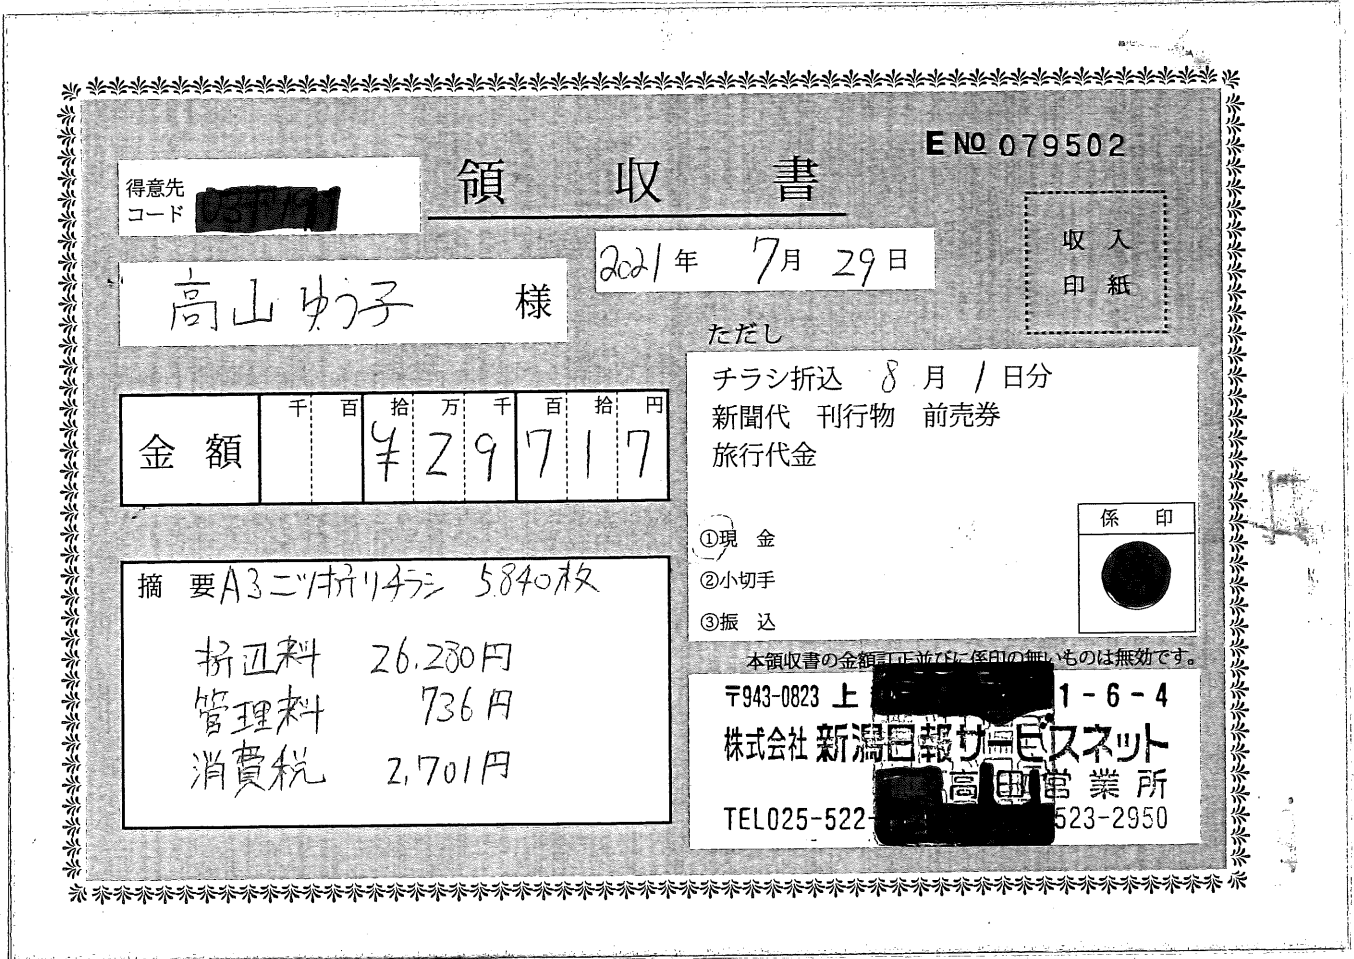 E NO 079502
領収書
得意先
コード
収入
印紙
2021年 7月 29日
高山ゆう子 様
ただし
チラシ折込 8月 1日分
新聞代 刊行物 前売券
旅行代金
金額 千 百 拾 万 千 百 拾 円
¥29717
①現金
②小切手
③振込
係印
摘要 A3二ツ折リチラシ 5840枚
折込料 26,280円
管理料 736円
消費税 2,701円
本領収書の金額訂正並びに係印の無いものは無効です。
〒943-0823 上 1-6-4
株式会社 新潟日報サービスネット
高田営業所
TEL025-522- 523-2950